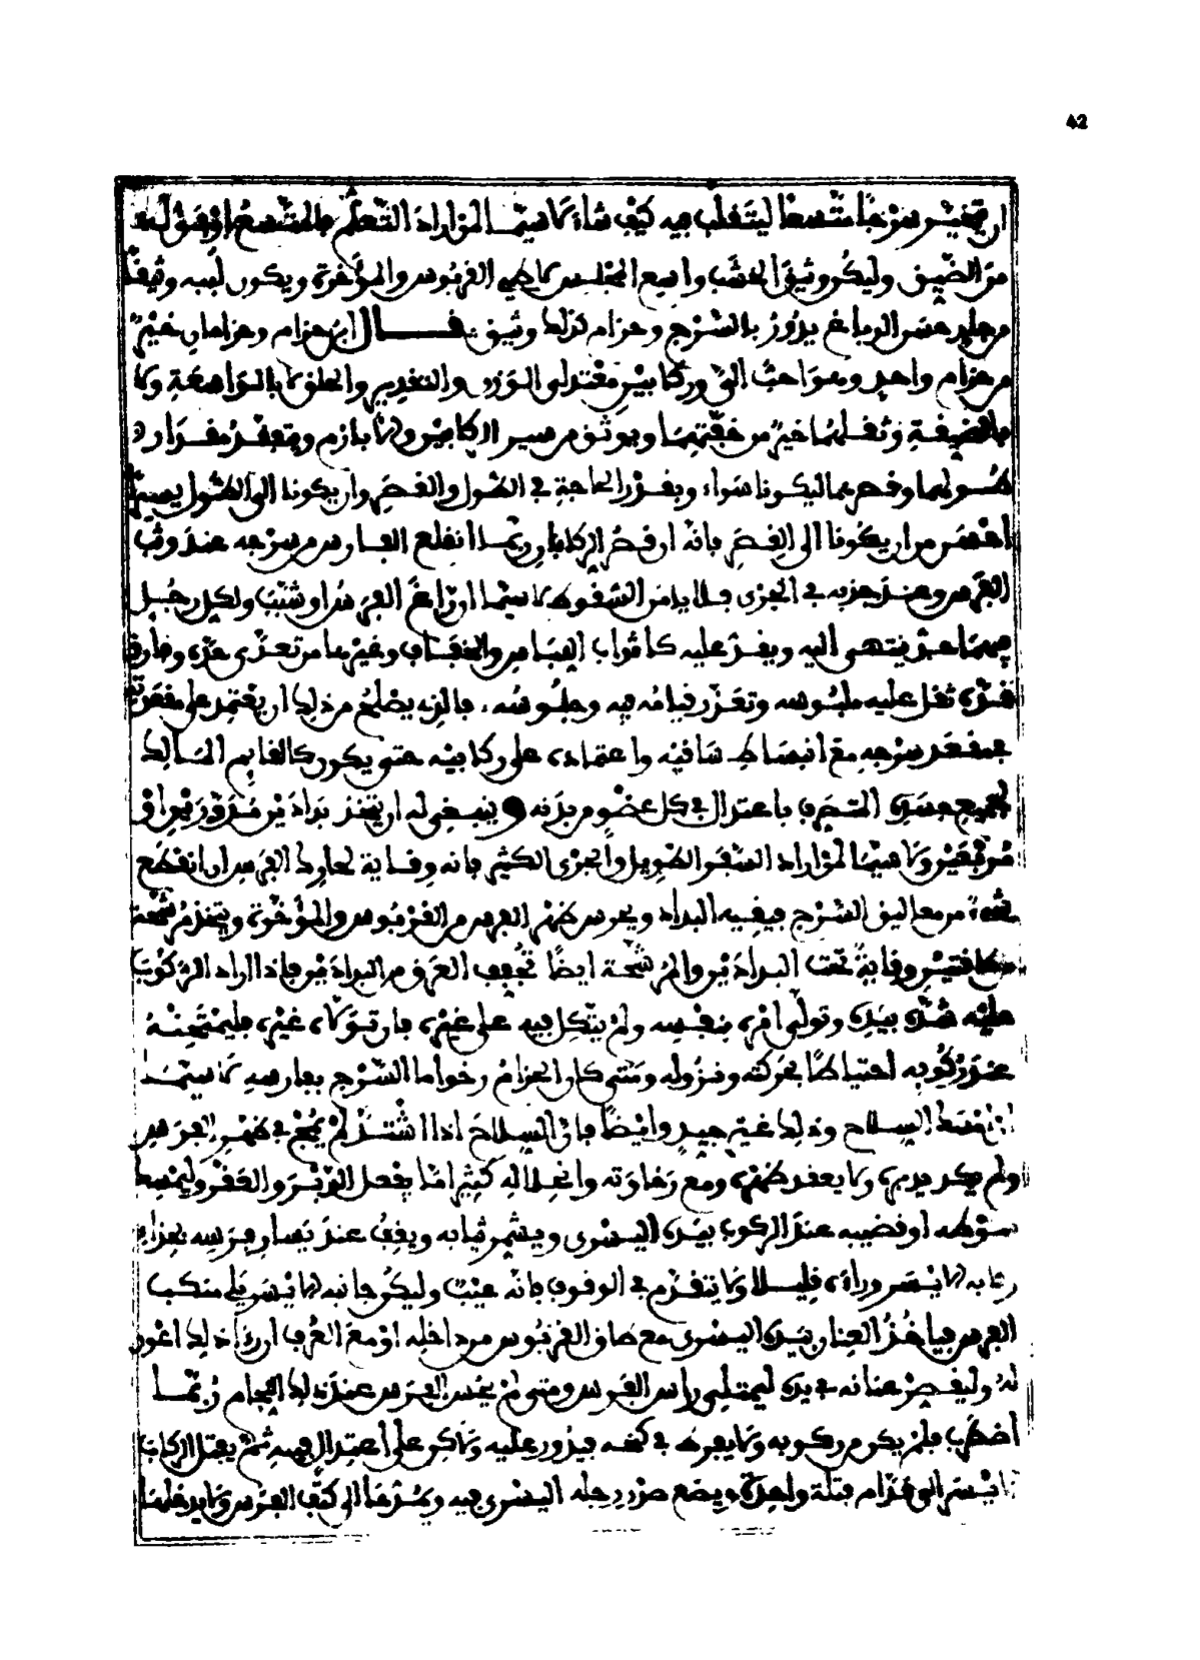 42
ان يتخير سرجا متسعا ليتقلب فيه كيف شاء لا سيما لمن اراد التعلم فالمتسع اوفق له
من الضيق وليكن وثيق الخشب واسع المجلس لاطي القربوس والمؤخرة ويكون لببه وثيقا
من جلد حسن الدباغ يدور بالسرج وحزام كذلك وثيق قال ابن حزام وحزامان خير
من حزام واحد وهو احب الي وركابين معتدلي الوزن والتقدير والحلق لا بالواسعة ولا
بالضيقة وثقلهما خير من خفتهما ويوثق من سير الركابين ويتفقد مقدار
طولهما وقصرهما ليكونا سواء وبقدر الحاجة في الطول والقصر وان يكونا الى الطول يسيرا
احسن من ان يكونا الى القصر فانه ان قصر الركابان ربما انقلع الفارس من سرجه عند وثب
الفرس وعند جريه في الجرى فلا يامن السقوط لا سيما ان زاغ الفرس او شبب ولكل رجل
حد ينتهي اليه ويقدر عليه كاثواب اللباس والخفاف وغيرها من تعدى حده وفارق
قدره ثقل عليه ملبوسه وتعذر قيامه فيه وجلوسه فالذي يصلح من ذلك ان يعتمد على مقعدته
في مقعد سرجه مع انبساط ساقيه واعتماده على ركابيه حتى يكون كالقايم المالك
لجميع جسده المتصرف باعتدال في كل عضو من بدنه وينبغي له ان يتخذ براذين مدورين او
مربعين ولا سيما لمن اراد السفر الطويل والجرى الكثير فانه وقاية لحارك الفرس ان انقطع
شيء من معاليق السرج فيقيه البداد ويحرس ظهر الفرس من القربوس والمؤخرة ويتخذ مرشحة
وقاية تحت البدادين والمرشحة ايضا تجفف العرق من البدادين فاذا اراد الركوب
عليه شده بيده وتولى امره بنفسه ولم يتكل فيه على غيره فان تولاه غيره فليمتحنه
عند ركوبه احتياطا لحركته ونزوله ومتى كان الحزام رخوا ماا السرج بفارسه لا سيما
السلاح وذلك غير جيد وايضا فان السلاح اذا اشتد لم يمج في ظهر الفرس
ولم يكد يدبره ولا يعقر ظهره ومع رخاوته وانحلاله كثيرا ما يفعل الدبر والعقر وليمسك
سوطه او قضيبه عند الركوب بيده اليسرى ويشمر ثيابه ويقف عند يسار فرسه بحذاء
ركابه الايسر وراءه قليلا ولا يتقدم في الوقوف فانه عيب وليكن جانبه الايسر يلي منكب
الفرس فياخذ العنان بيده اليسرى مع طاق القربوس من داخله او مع العرف ان راى ذلك اعون
له وليقصر عنانه في يده ليمتلي راس الفرس ومتى لم يحس الفرس عند ذلك اللجام ربما
اضطرب فلم يكن من ركوبه ولا يفرط في كبحه فيدور عليه ولاكن على اعتدال فيه ثم يقبل الركاب
الايسر الى قدام فتلة واحدة ويضع صدر رجله اليسرى فيه ويمدها الى كتف الفرس ولا يدخلها